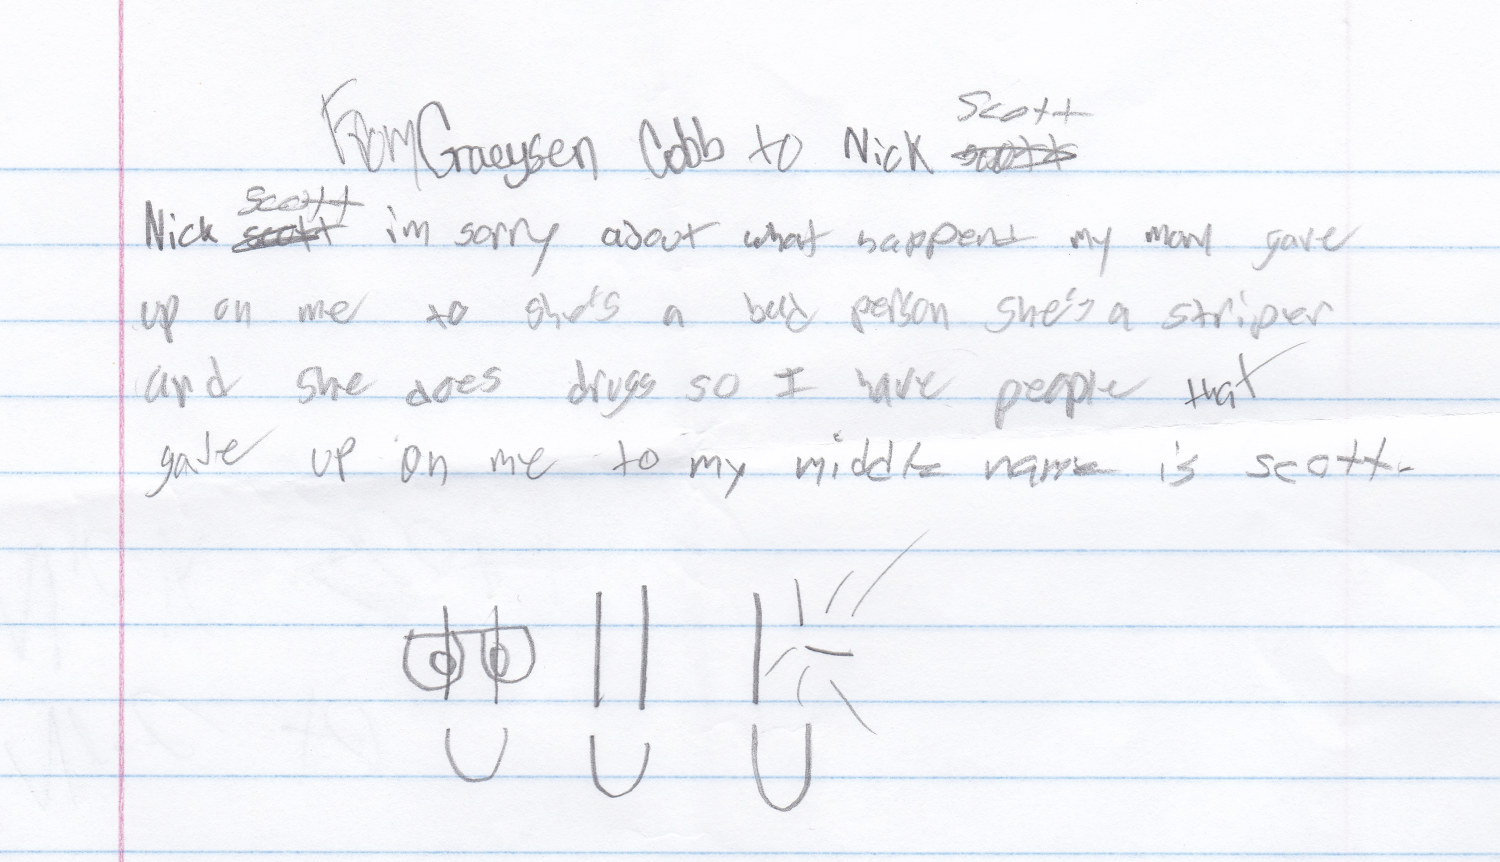 From Graeysen Cobb to Nick Scott
Nick Scott im sorry about what happent my mom gave
up on me to she's a bad person she's a striper
and she does drugs so I have people that
gave up on me to my middle name is scott.